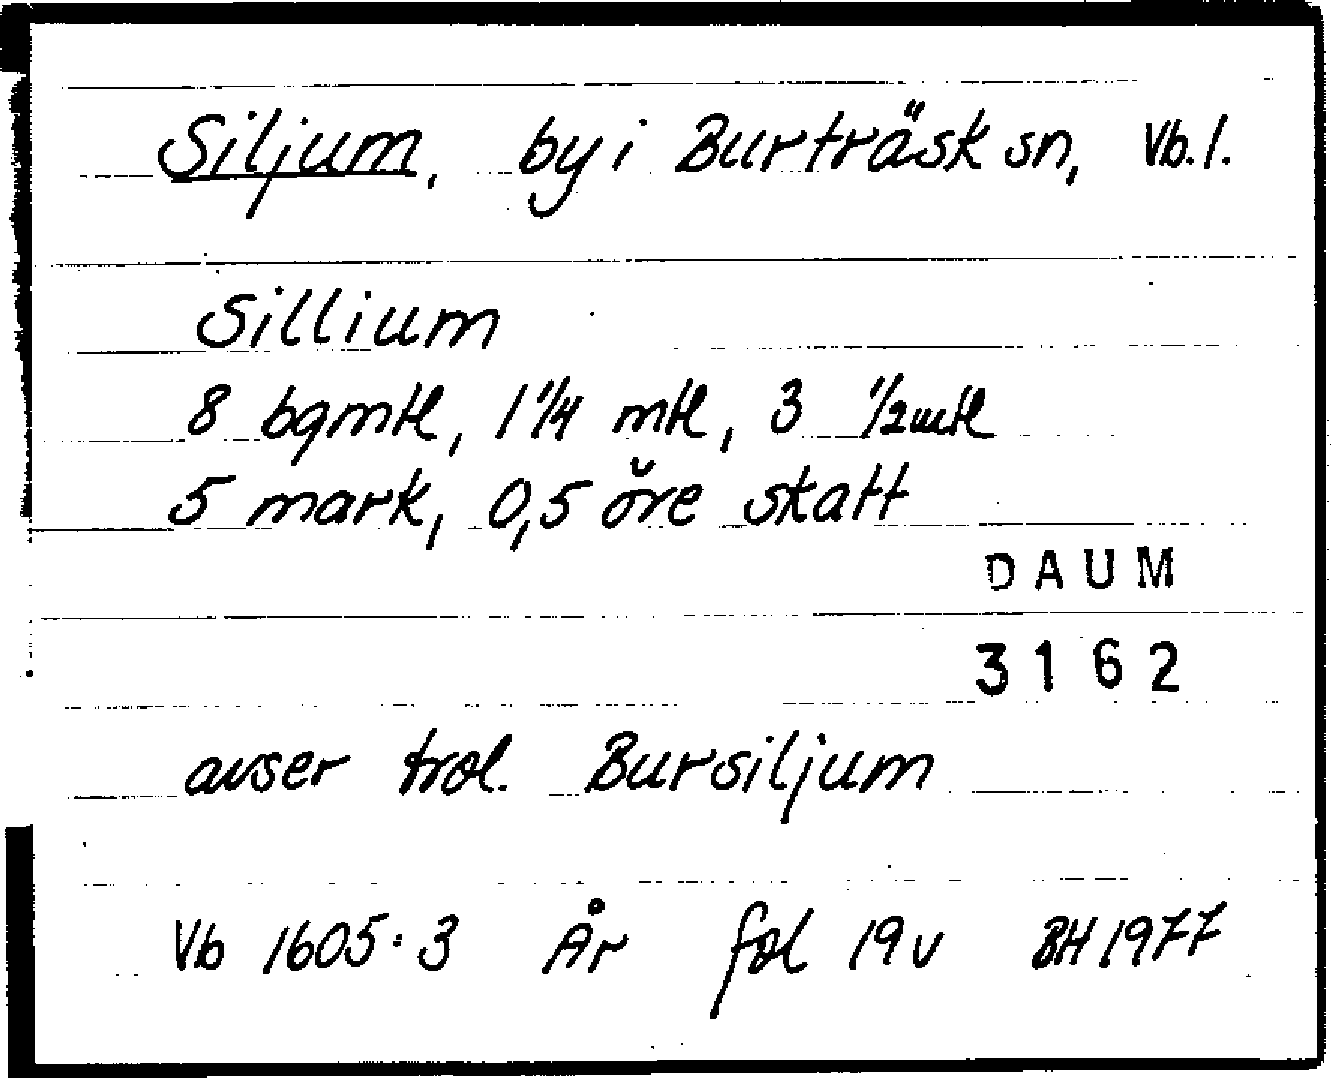 Siljum, by i Burträsk sn, Vb. l.
Sillium
8 bgmtl, 1 1/4 mtl, 3 1/2 mtl
5 mark, 0,5 öre skatt
DAUM
3162
avser trol. Bursiljum
Vb 1605:3 År fol 19v BH 1977